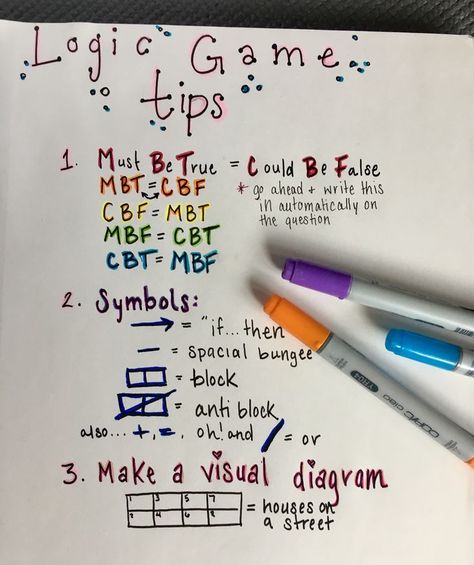 Logic Game
tips
1. Must Be True = Could Be False
MBT = CBF
* go ahead + write this
in automatically on
the question
CBF = MBT
MBF = CBT
CBT = MBF
2. Symbols:
→ = "if...then
— = spacial bungee
= block
= anti block
also... +, =, oh! and / = or
3. Make a visual diagram
1 3 5 7
2 4 6 8
= houses on
a street
COPIC ciao